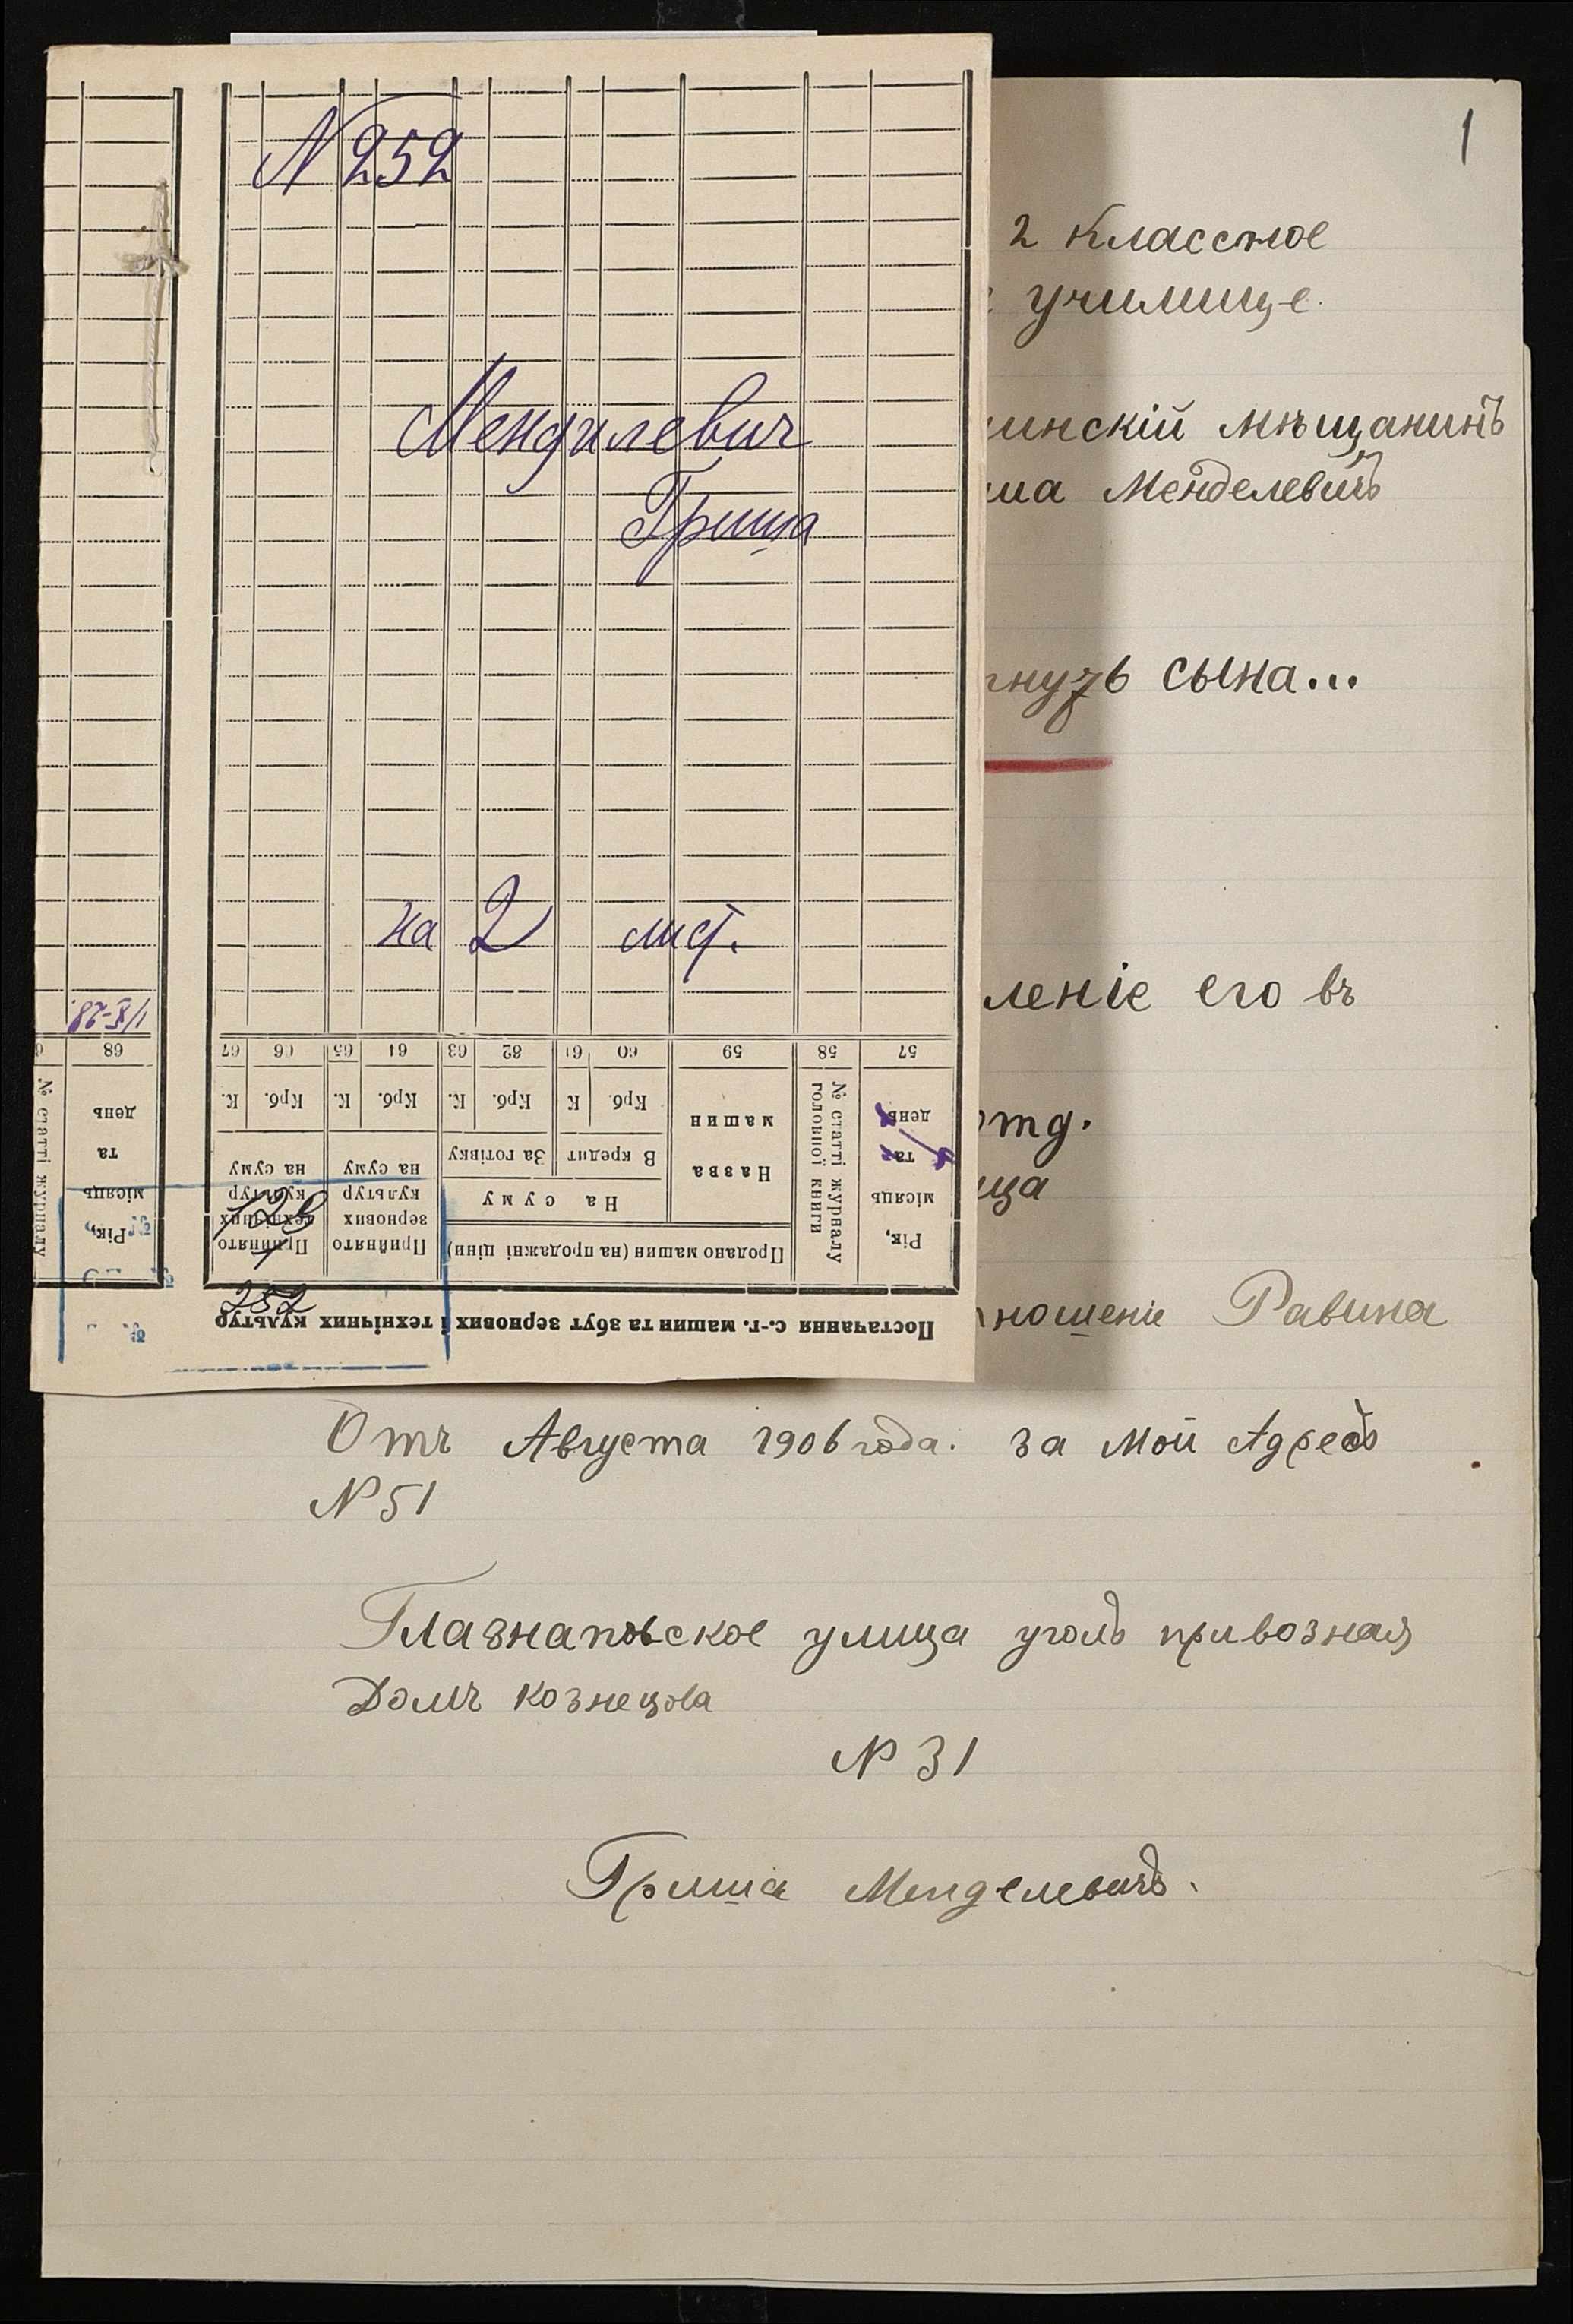 N 252
Мендилевич
Гриша
на 2 лист.
1/X-28
68
67
66
65
64
63
62
61
60
59
58
57
К.
Крб.
К.
Крб.
К.
Крб.
К
Крб.
Назва машин
№ статті журналу головної книги
Рік, місяць та день
№ статті журналу
Рік, місяць та день
За готівку
В кредит
На суму
Прийнято технічних культур на суму
Прийнято зернових культур на суму
Продано машин (на продажні ціни)
129
252
Постачання с.-г. машин та збут зернових і технічних культур
1
2 классное
училище.
инскій мѣщанинъ
ша Менделевичъ
нузь сына...
леніе его въ
отд.
ица
ношеніе Равина
Отъ Августа 1906 года. за Мой Адресъ
N 51
улица уголъ привозная
Домъ Кознецова
N 31
Гриша Менделевичъ.